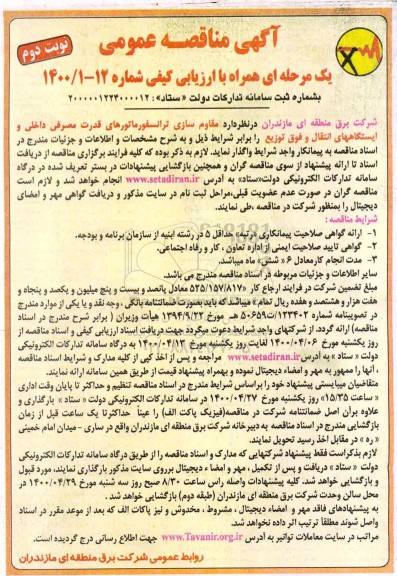 آگهی مناقصه عمومی
نوبت دوم
یک مرحله ای همراه با ارزیابی کیفی شماره ۱۲-۱۴۰۰/۱
بشماره ثبت سامانه تدارکات دولت «ستاد»: ۲۰۰۰۰۰۱۲۲۳۰۰۰۰۱۲
شرکت برق منطقه ای مازندران درنظردارد مقاوم سازی ترانسفورماتورهای قدرت مصرفی داخلی و
ایستگاههای انتقال و فوق توزیع را برابر شرایط ذیل و به شرح مشخصات و اطلاعات و جزئیات مندرج در
اسناد مناقصه به پیمانکار واجد شرایط واگذار نماید. لازم به ذکر بوده که کلیه فرایند برگزاری مناقصه از دریافت
اسناد تا ارائه پیشنهاد از سوی مناقصه گران و همچنین بازگشایی پیشنهادات در بستر تعریف شده در درگاه
سامانه تدارکات الکترونیکی دولت«ستاد» به آدرس www.setadiran.ir انجام خواهد شد و لازم است
مناقصه گران در صورت عدم عضویت قبلی،مراحل ثبت نام در سایت مذکور و دریافت گواهی مهر و امضای
دیجیتال را بمنظور شرکت در مناقصه ،طی نمایند.
شرایط مناقصه :
۱- ارائه گواهی صلاحیت پیمانکاری برتبه: حداقل ۵ در رشته ابنیه از سازمان برنامه و بودجه.
۲- گواهی تایید صلاحیت ایمنی از اداره تعاون ، کار و رفاه اجتماعی.
۳- مدت انجام کارمعادل ۶« شش» ماه میباشد.
سایر اطلاعات و جزئیات مربوطه در اسناد مناقصه مندرج می باشد.
مبلغ تضمین شرکت در فرایند ارجاع کار «۵۲۵/۱۵۷/۸۱۷ معادل پانصد و بیست و پنج میلیون و یکصد و پنجاه و
هفت هزار و هشتصد و هفده ریال تمام» میباشد که باید بصورت ضمانتنامه بانکی ، وجه نقد و یا یکی از موارد مندرج
در تصویبنامه شماره ۱۲۳۴۰۲/ت۵۰۶۵۹ هـ مورخ ۱۳۹۴/۹/۲۲ هیأت وزیران ( برابر شرح مندرج در اسناد
مناقصه) ارائه گردد. از شرکتهای واجد شرایط دعوت میگردد جهت دریافت اسناد ارزیابی کیفی و اسناد مناقصه از
روز یکشنبه مورخ ۱۴۰۰/۰۴/۰۶ لغایت روز یکشنبه مورخ ۱۴۰۰/۰۴/۱۳ به درگاه سامانه تدارکات الکترونیکی
دولت « ستاد » به آدرس www.setadiran.ir مراجعه و پس از اخذ کپی از کلیه مدارک و شرایط اسناد مناقصه
، آنها را ممهور به مهر و امضاء دیجیتال نموده و بهمراه پیشنهاد قیمت از طریق همین سامانه ارائه نمایند.
متقاضیان میبایستی پیشنهاد خود را براساس شرایط مندرج در اسناد مناقصه تنظیم و حداکثر تا پایان وقت اداری
« ساعت ۱۵/۳۵» روز یکشنبه مورخ ۱۴۰۰/۰۴/۲۷ در سامانه تدارکات الکترونیکی دولت « ستاد » بارگذاری و
علاوه برآن اصل ضمانتنامه شرکت در مناقصه(فیزیک پاکت الف) را عیناً حداکثرتا یک ساعت قبل از زمان
بازگشایی مندرج در اسناد مناقصه به دبیرخانه شرکت برق منطقه ای مازندران واقع در ساری - میدان امام خمینی
« ره » در مقابل اخذ رسید تحویل نمایند.
لازم بذکراست فقط پیشنهاد شرکتهایی که مدارک و اسناد مناقصه را از طریق درگاه سامانه تدارکات الکترونیکی
دولت « ستاد » دریافت و پس از تکمیل ، مهر و امضاء دیجیتال برروی سایت مذکور بارگذاری نمایند، مورد قبول
و بازگشایی خواهد شد. کلیه پیشنهادات واصله راس ساعت ۸/۳۰ صبح روز سه شنبه مورخ ۱۴۰۰/۰۴/۲۹ در
محل سالن وحدت شرکت برق منطقه ای مازندران (طبقه دوم) بازگشایی خواهد شد .
به پیشنهادهای فاقد مهر و امضاء دیجیتال ، مشروط ، مخدوش و نیز پاکات الف که بعد از موعد مقرر در اسناد
واصل شوند مطلقاً ترتیب اثر داده نخواهد شد.
مراتب در سایت معاملات توانیر به آدرس www.Tavanir.org.ir جهت اطلاع رسانی درج گردیده است.
روابط عمومی شرکت برق منطقه ای مازندران